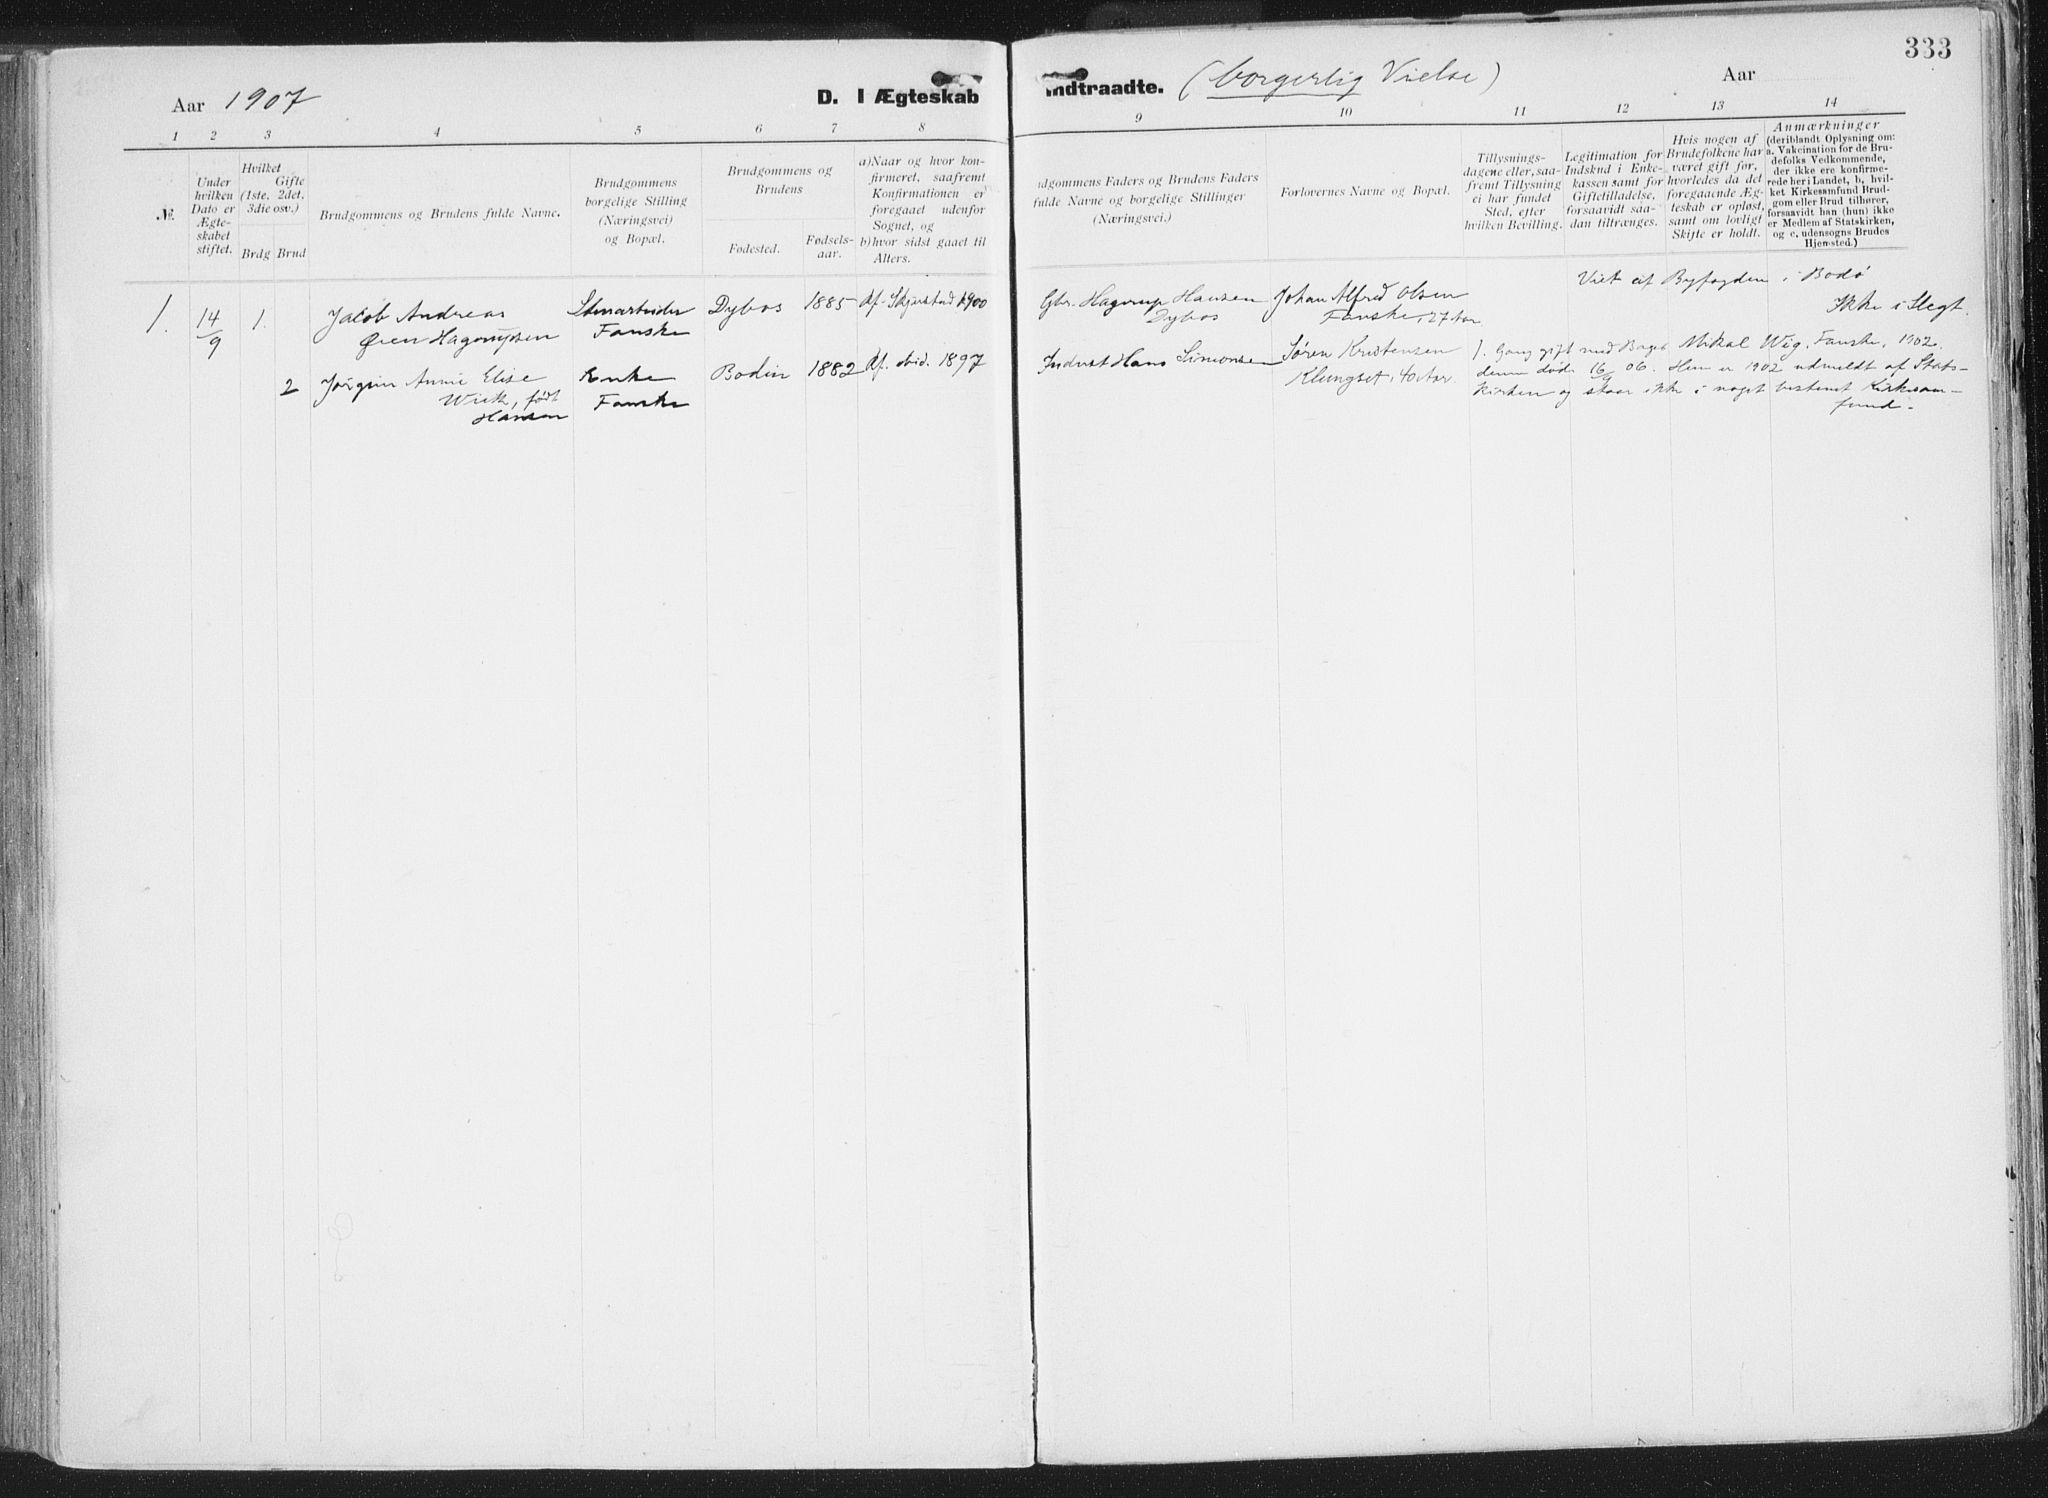 333
Aar 1907
D. I Ægteskab indtraadte. (borgerlig Vielse)
Aar
1 2 3 4 5 6 7 8 9 10 11 12 13 14
№.
Under hvilken Dato er Ægte- skabet stiftet.
Hvilket Gifte (1ste, 2det, 3die osv.)
Brdg Brud
Brudgommens og Brudens fulde Navne.
Brudgommens borgelige Stilling (Næringsvei) og Bopæl.
Brudgommens og Brudens
Fødested.
Fødsels- aar.
a) Naar og hvor kon- firmeret, saafremt Konfirmationen er foregaaet udenfor Sognet, og
b) hvor sidst gaaet til Alters.
dgommens Faders og Brudens Faders fulde Navne og borgelige Stillinger (Næringsvei.)
Forlovernes Navne og Bopæl.
Tillysnings- dagene eller, saa- fremt Tillysning ei har fundet Sted, efter hvilken Bevilling.
Legitimation for Indskud i Enke- kassen samt for Giftetilladelse, forsaavidt saa- dan tiltrænges.
Hvis nogen af Brudefolkene har været gift før, hvorledes da det foregaaende Æg- teskab er opløst, samt om lovligt Skifte er holdt.
Anmærkninger
(deriblandt Oplysning om: a. Vakcination for de Bru- defolks Vedkommende, der ikke ere konfirme- rede her i Landet, b, hvil- ket Kirkesamfund Brud- gom eller Brud tilhører, forsaavidt han (hun) ikke er Medlem af Statskirken, og c. udensogns Brudes Hjemsted.)
Viet af Byfogden i Bodø
Ikke i Slegt.
1. 14/9 1. Jacob Andreas
Øien Hagerupsen
Stenarbeider
Fauske
Dybos 1885 Kf. Skjerstad 1900
Gbr. Hagerup Hansen
Dybos
Johan Alfred Olsen
Fauske, 27 Aar
2 Jørgine Annie Elise
Wiik, født
Hansen
Enke
Fauske
Bodin 1882 Kf. ibid. 1897
Indrst Hans Simonsen
Søren Kristensen
Klungset, 40 Aar.
1. Gang gift med Bager Mikal Wiig, Fauske, 1902.
denne døde 16/9 06. Hun er 1902 udmeldt af Stats-
kirken og staar ikke i noget bestemt Kirkesam-
fund.